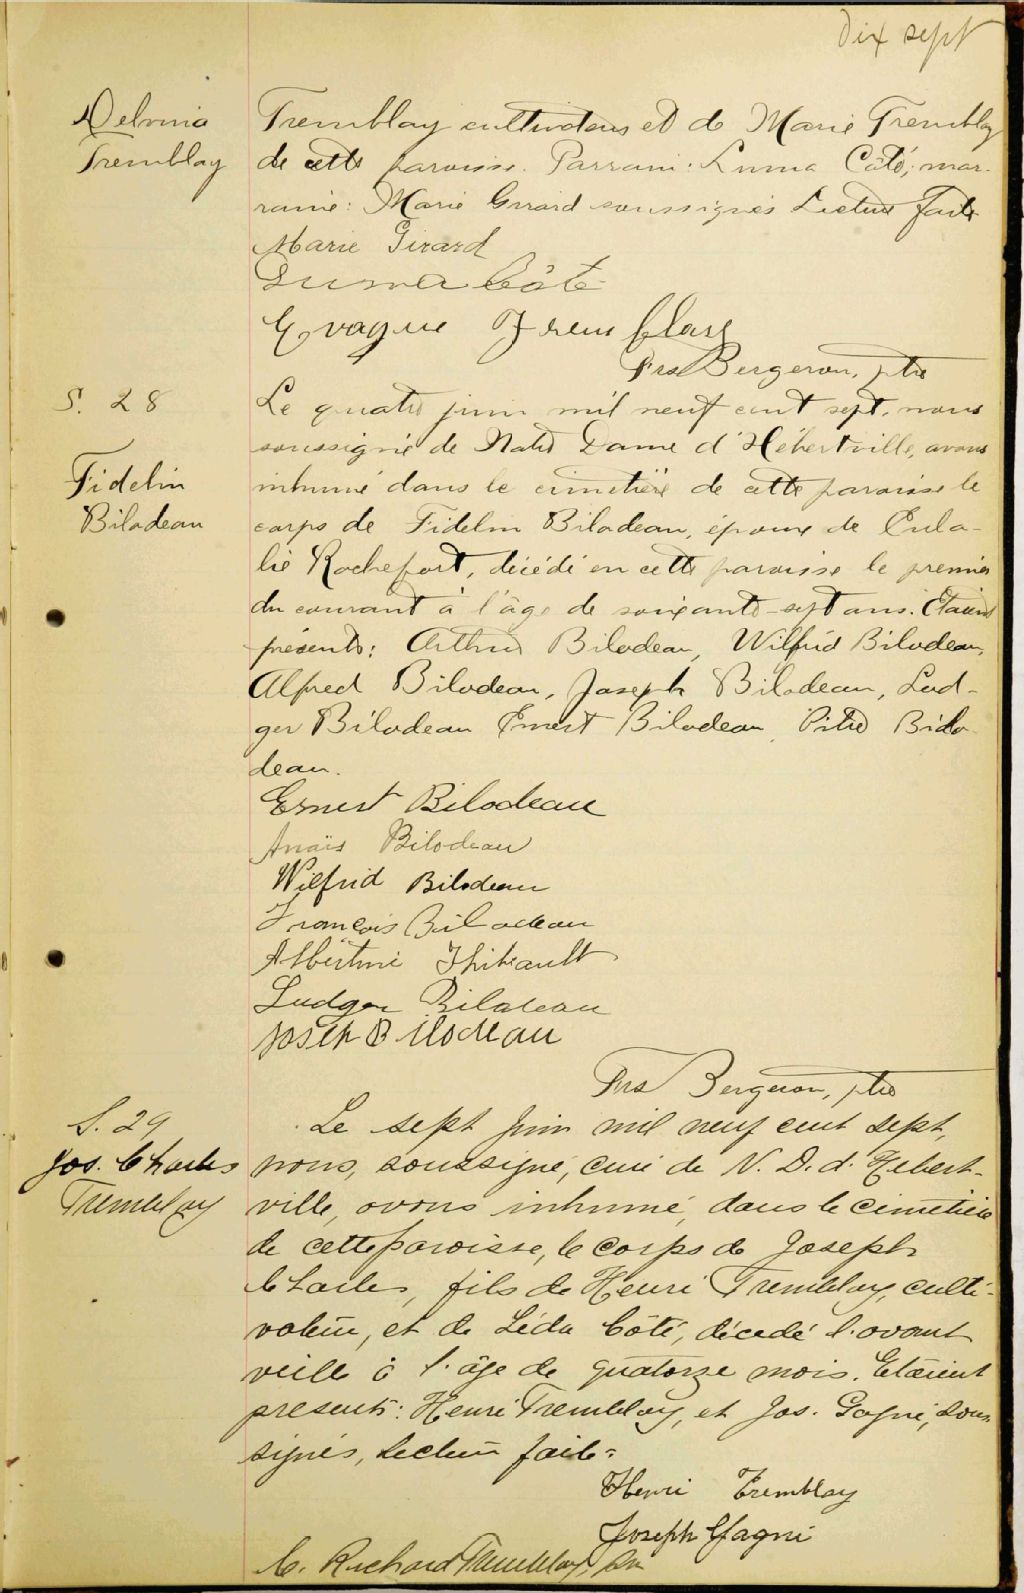 Dix sept
Delvina
Tremblay
Tremblay cultivateur et de Marie Tremblay
de cette paroisse. Parrain: Luma Côté; mar-
raine: Marie Girard soussignés Lecture faite
Marie Girard
Luma Côté
Evague Tremblay
Frs Bergeron, ptre
S. 28
Fidelin
Bilodeau
Le quatre juin mil neuf cent sept, nous
soussigné de Notre Dame d'Hébertville, avons
inhumé dans le cimetière de cette paroisse le
corps de Fidelin Bilodeau, époux de Eula-
lie Rochefort, décédé en cette paroisse le premier
du courant à l'âge de soixante-sept ans. Etaient
présents: Arthur Bilodeau, Wilfrid Bilodeau,
Alfred Bilodeau, Joseph Bilodeau, Lud-
ger Bilodeau Ernest Bilodeau, Pitre Bilo-
deau.
Ernest Bilodeau
Anaïs Bilodeau
Wilfrid Bilodeau
François Bilodeau
Albertine Thibeault
Ludger Bilodeau
Joseph Bilodeau
Frs Bergeron, ptre
S. 29
Jos. Charles
Tremblay
Le sept juin mil neuf cent sept,
nous, soussigné, curé de N. D. d'Hébert-
ville, avons inhumé, dans le cimetière
de cette paroisse, le corps de Joseph
Charles, fils de Henri Tremblay, culti-
vateur, et de Léda Côté, décédé l'avant
veille à l'âge de quatorze mois. Etaient
présents: Henri Tremblay, et Jos. Gagné, sous-
signés, Lecture faite.
Henri Tremblay
Joseph Gagné
C. Richard Tremblay, ptre